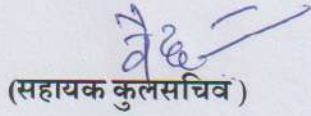 (सहायक कुलसचिव )